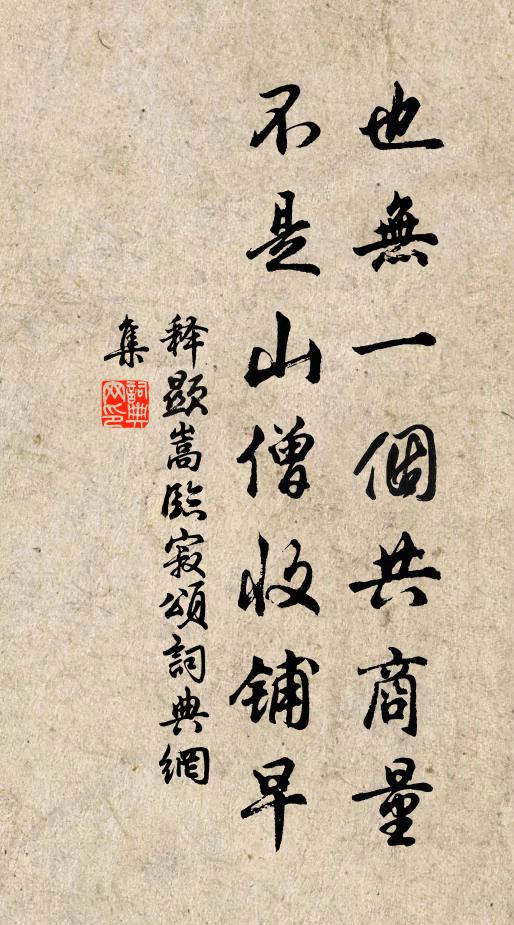 也無一個共商量
不是山僧收鋪早
释顯嵩臨寂頌詞典網
集
詞典
网印